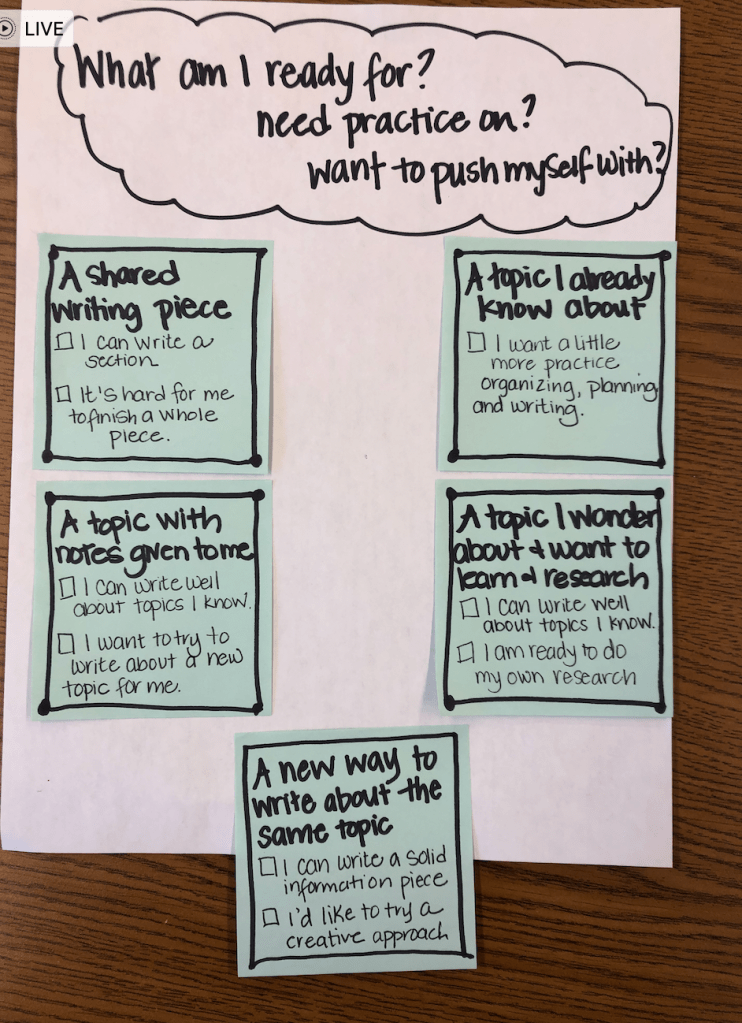 LIVE
What am I ready for?
need practice on?
want to push myself with?
A shared
writing piece
I can write a
section
It's hard for me
to finish a whole
piece.
A topic I already
know about
I want a little
more practice
organizing, planning
and writing.
A topic with
notes given to me
I can write well
about topics I know.
I want to try to
write about a new
topic for me.
A topic I wonder
about & want to
learn & research
I can write well
about topics I know.
I am ready to do
my own research
A new way to
write about the
same topic
I can write a solid
information piece
I'd like to try a
creative approach